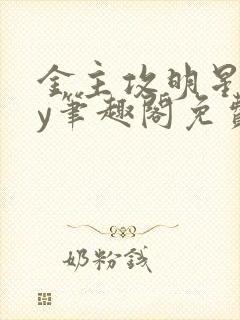 金主攻明星
y笔趣阁免费
奶粉钱